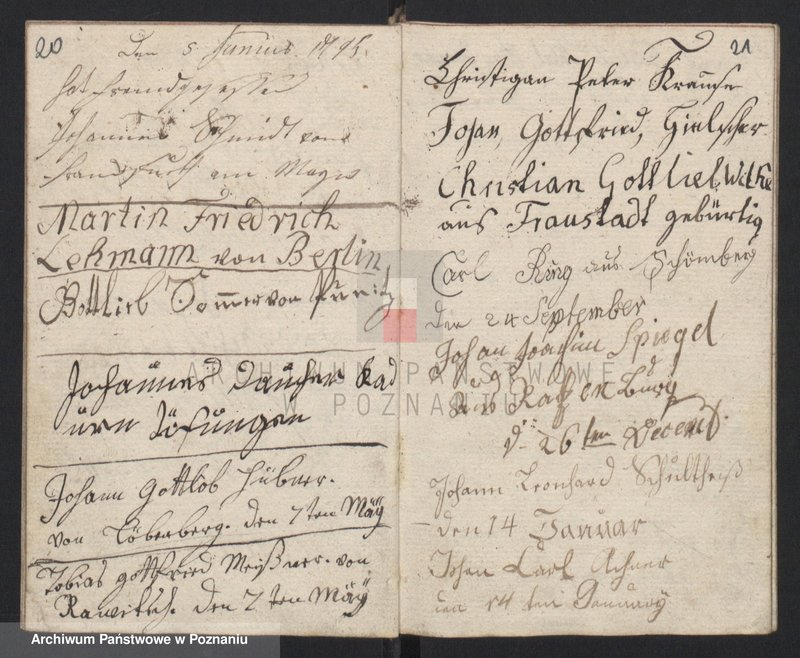 20
Den 5 Junius 1795.
hat fremdgesessen
Johannes Schmidt von
Frandfurth am Mayn
Martin Friedrich
Lehmann von Berlin
Gottlieb Sommer von Punitz
Johannes Daucher
Johann Gottlob Hübner.
von Löbenberg. den 7ten Mäÿ
Tobias Gottfried Meißner. von
Rawitsch. den 2 ten Mäÿ
21
Christigan Peter Krause
Johan, Gottfried, Hielscher
Christian Gottliel Wilke
aus Fraustadt gebürtig
Carl Ring aus Schömberg
den 24 September
Johan Joachim Spiegel
aus Ratzenburg
d. 26ten Decemb.
Johann Leonhard Schultheiß
den 14 Januar
Johan Carl Achner
den 14 ten January
ARCHIWUM PAŃSTWOWE
W POZNANIU
Archiwum Państwowe w Poznaniu